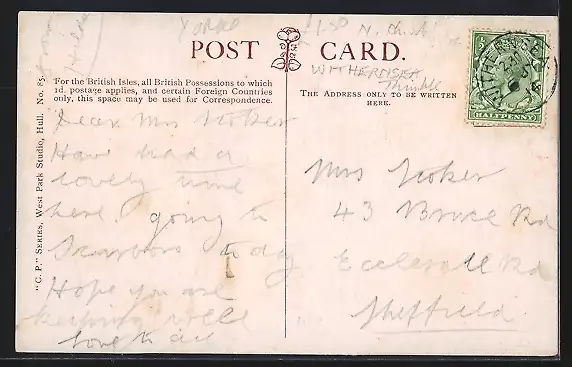 Yorks
POST CARD.
WITHERNSEA
For the British Isles, all British Possessions to which
1d. postage applies, and certain Foreign Countries
only, this space may be used for Correspondence.
THE ADDRESS ONLY TO BE WRITTEN
HERE.
"C. P." SERIES, West Park Studio, Hull. No. 85.
WITHERNSEA
HALFPENNY
Dear Mrs Stoker
Have had a
lovely time
here going to
Scarboro today
Hope you are
keeping well
love to all
Mrs Stoker
43 Bruce Rd
Ecclesall Rd
Sheffield